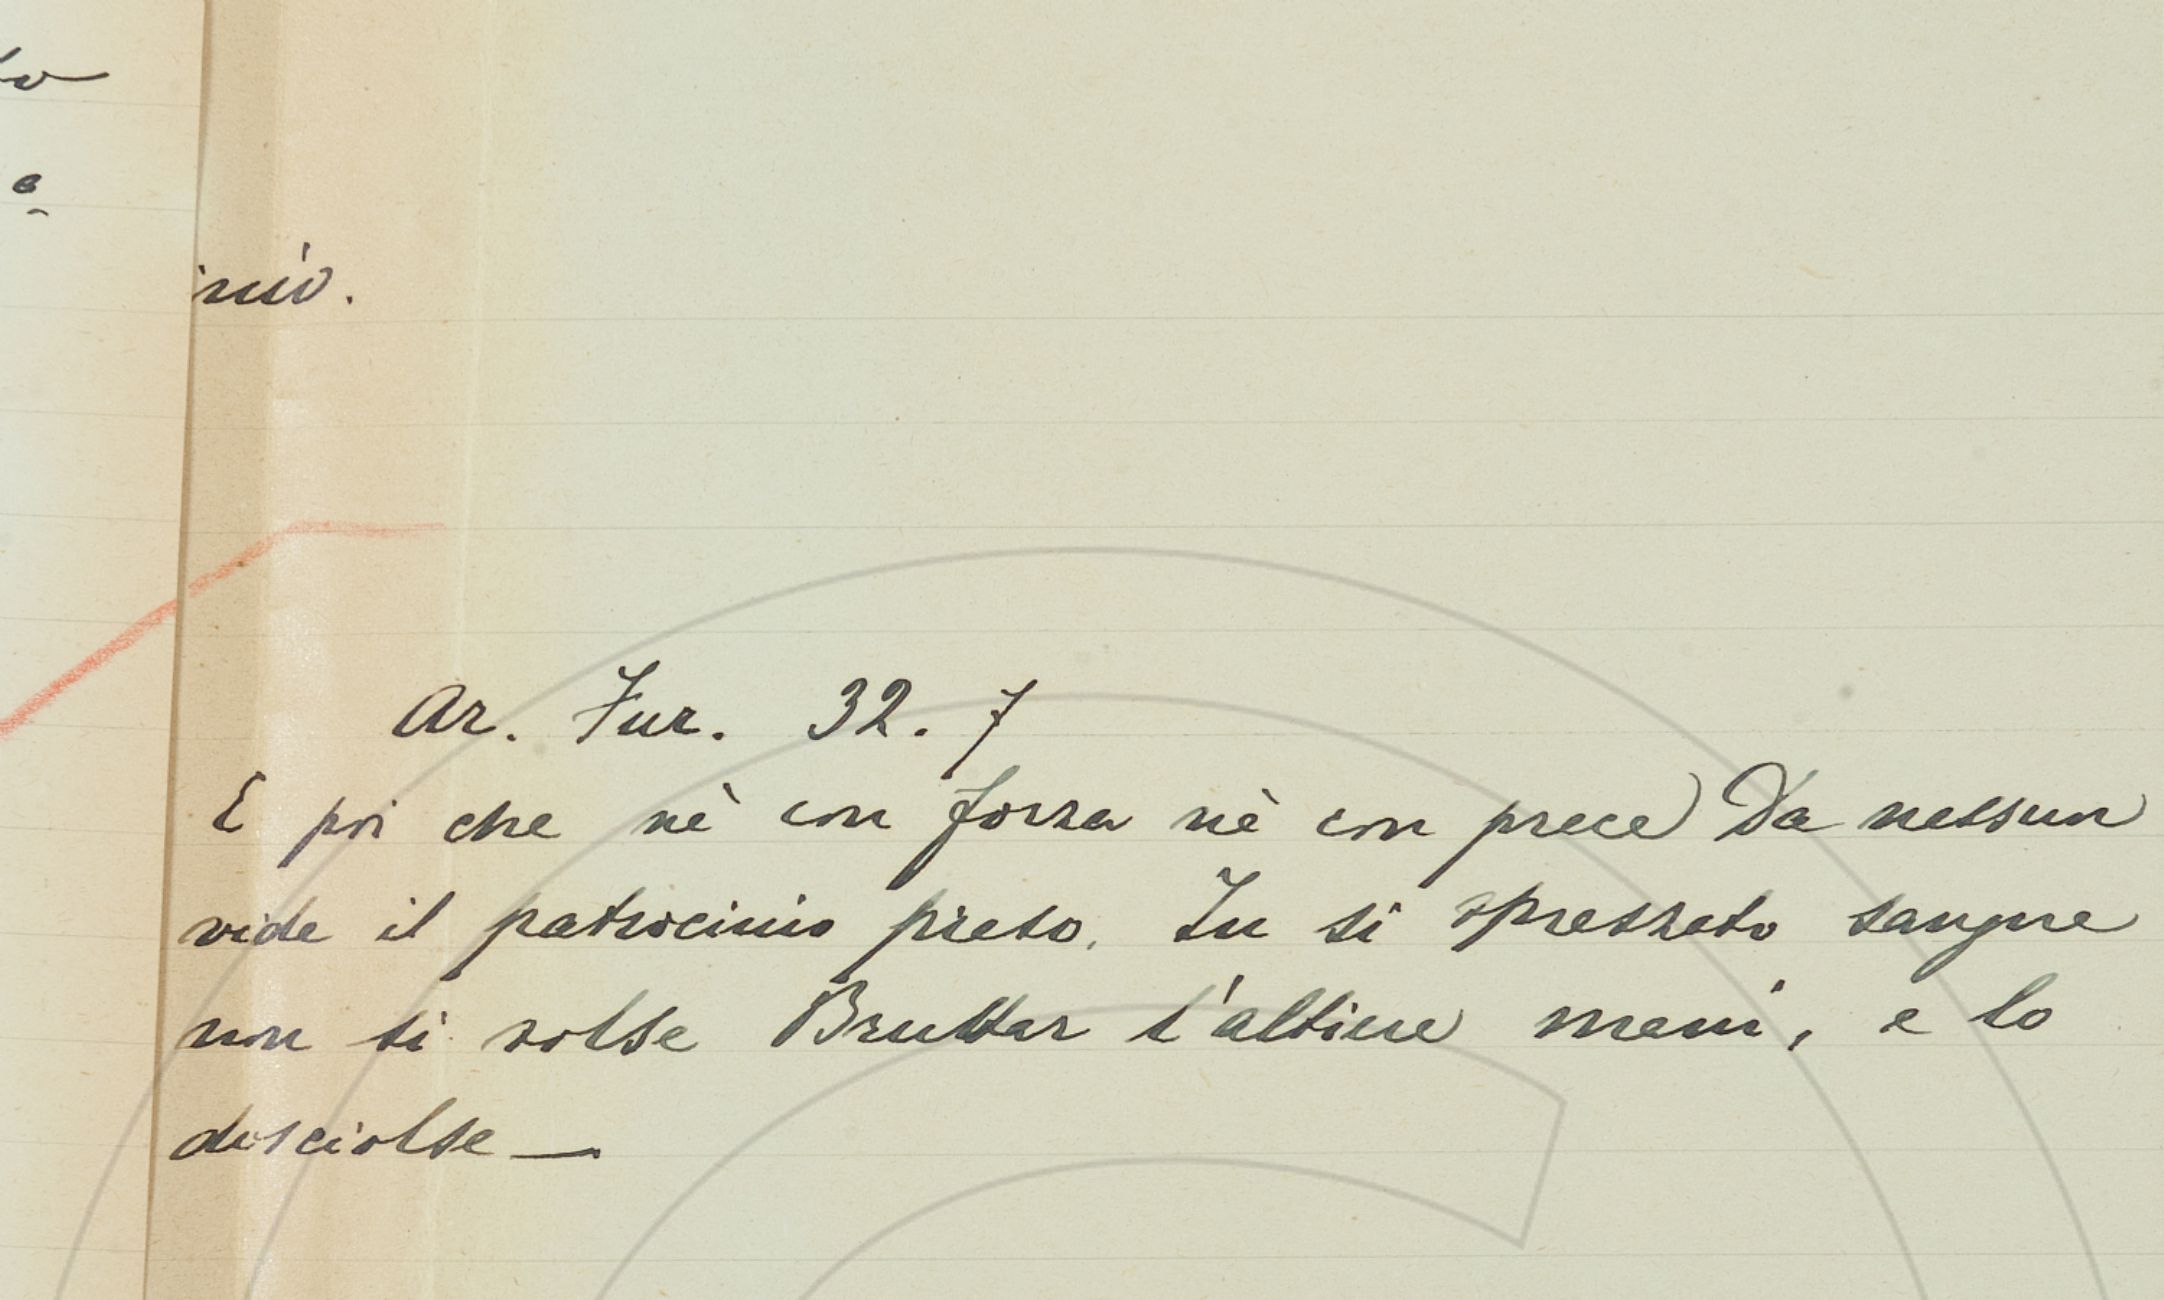 inio.
Ar. Fur. 32. 7
E poi che nè con forza nè con prece Da nessun
vide il patrocinio preso. In si sprezzato sangue
non si volse Bruttar l'altiere mani, e lo
disciolse —